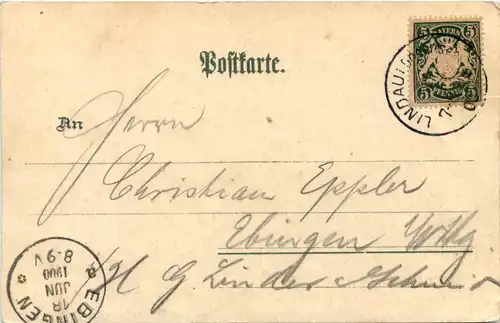 BAYERN
5 5
PFENNIG
5 5
LINDAU
Postkarte.
An Herrn
Christian Eppler
Ebingen Wttg
EBINGEN
18
JUN
1900
8-9 V